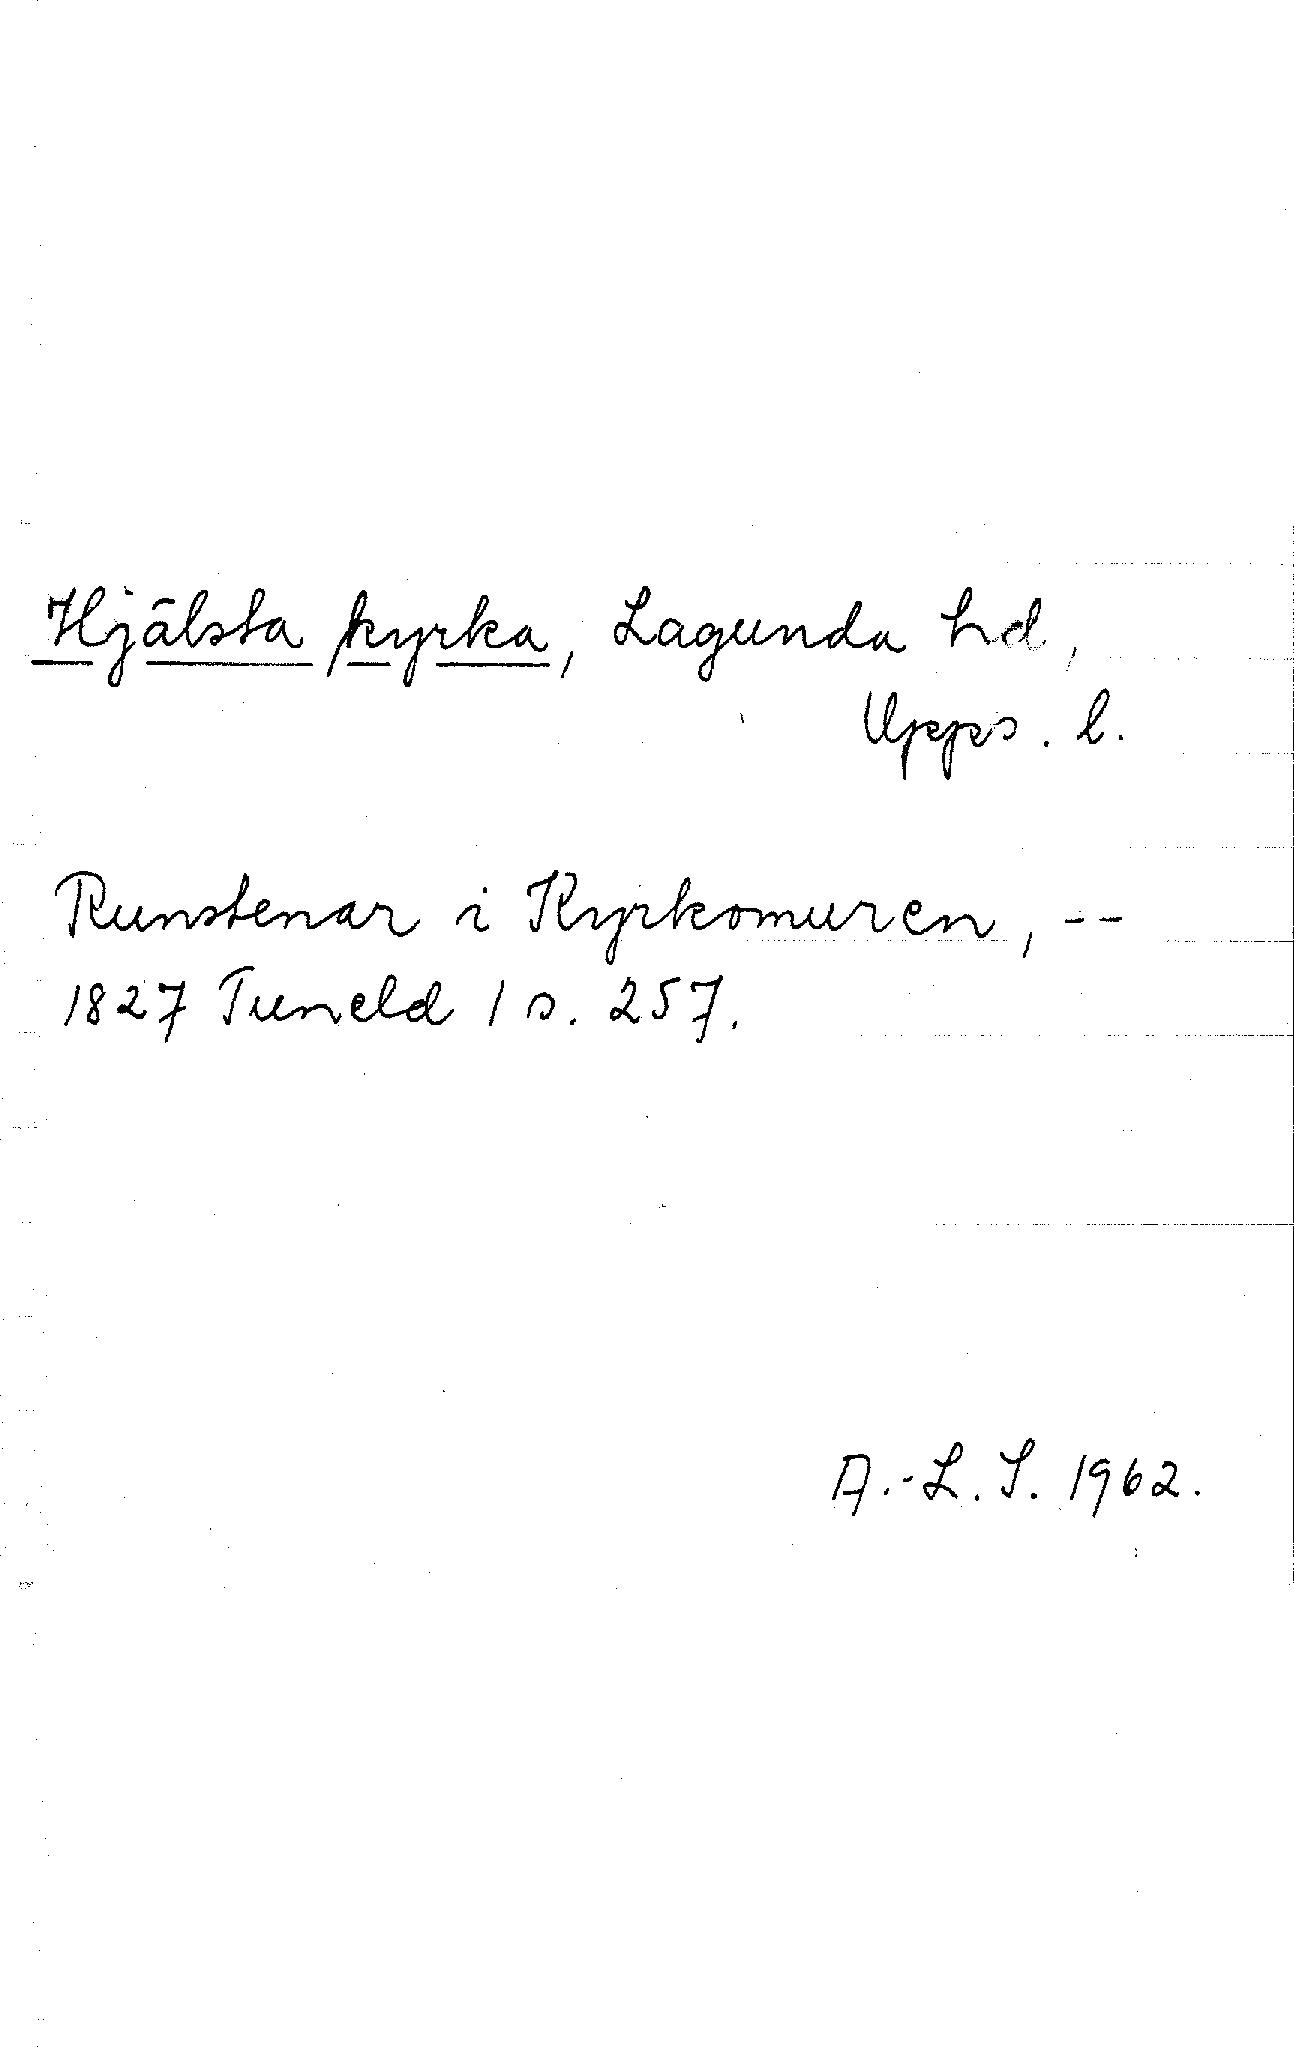 Hjälsta kyrka, Lagunda hd,
Upps. l.
Runstenar i Kyrkomuren, --
1827 Tuneld 1 s. 257.
A.-L. S. 1962.